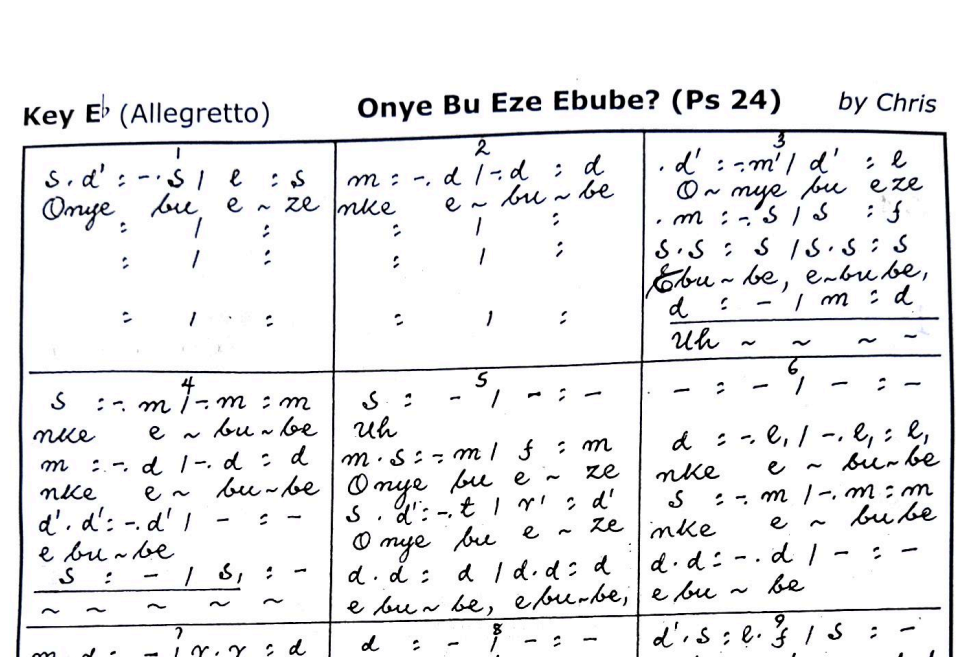 Key E♭ (Allegretto) Onye Bu Eze Ebube? (Ps 24) by Chris
1
s.d' : -.s / l : s
Onye bu e ~ ze
: / :
: / :
: / :
2
m : -.d /-.d : d
nke e ~ bu ~ be
: / :
: / :
: / :
3
.d' : -.m' / d' : l
O ~ nye bu eze
.m : -.s / s : f
s.s : s / s.s : s
Ebu ~ be, e~bu be,
d : - / m : d
Uh ~ ~ ~ ~
4
s : -.m /-.m : m
nke e ~ bu ~ be
m : -.d /-.d : d
nke e ~ bu~be
d'.d' : -.d' / - : -
e bu ~ be
s : - / s, : -
~ ~ ~ ~ ~
5
s : - / - : -
Uh
m.s : -.m / f : m
Onye bu e ~ ze
s.d' : -.t / r' : d'
Onye bu e ~ ze
d.d : d / d.d : d
e bu ~ be, ebu~be,
6
- : - / - : -
d : -.l, /-.l, : l,
nke e ~ bu~be
s : -.m /-.m : m
nke e ~ bube
d.d : -.d / - : -
e bu ~ be
7
m d : - / r.r : d
8
d : - / - : -
9
d'.s : l.f / s : -